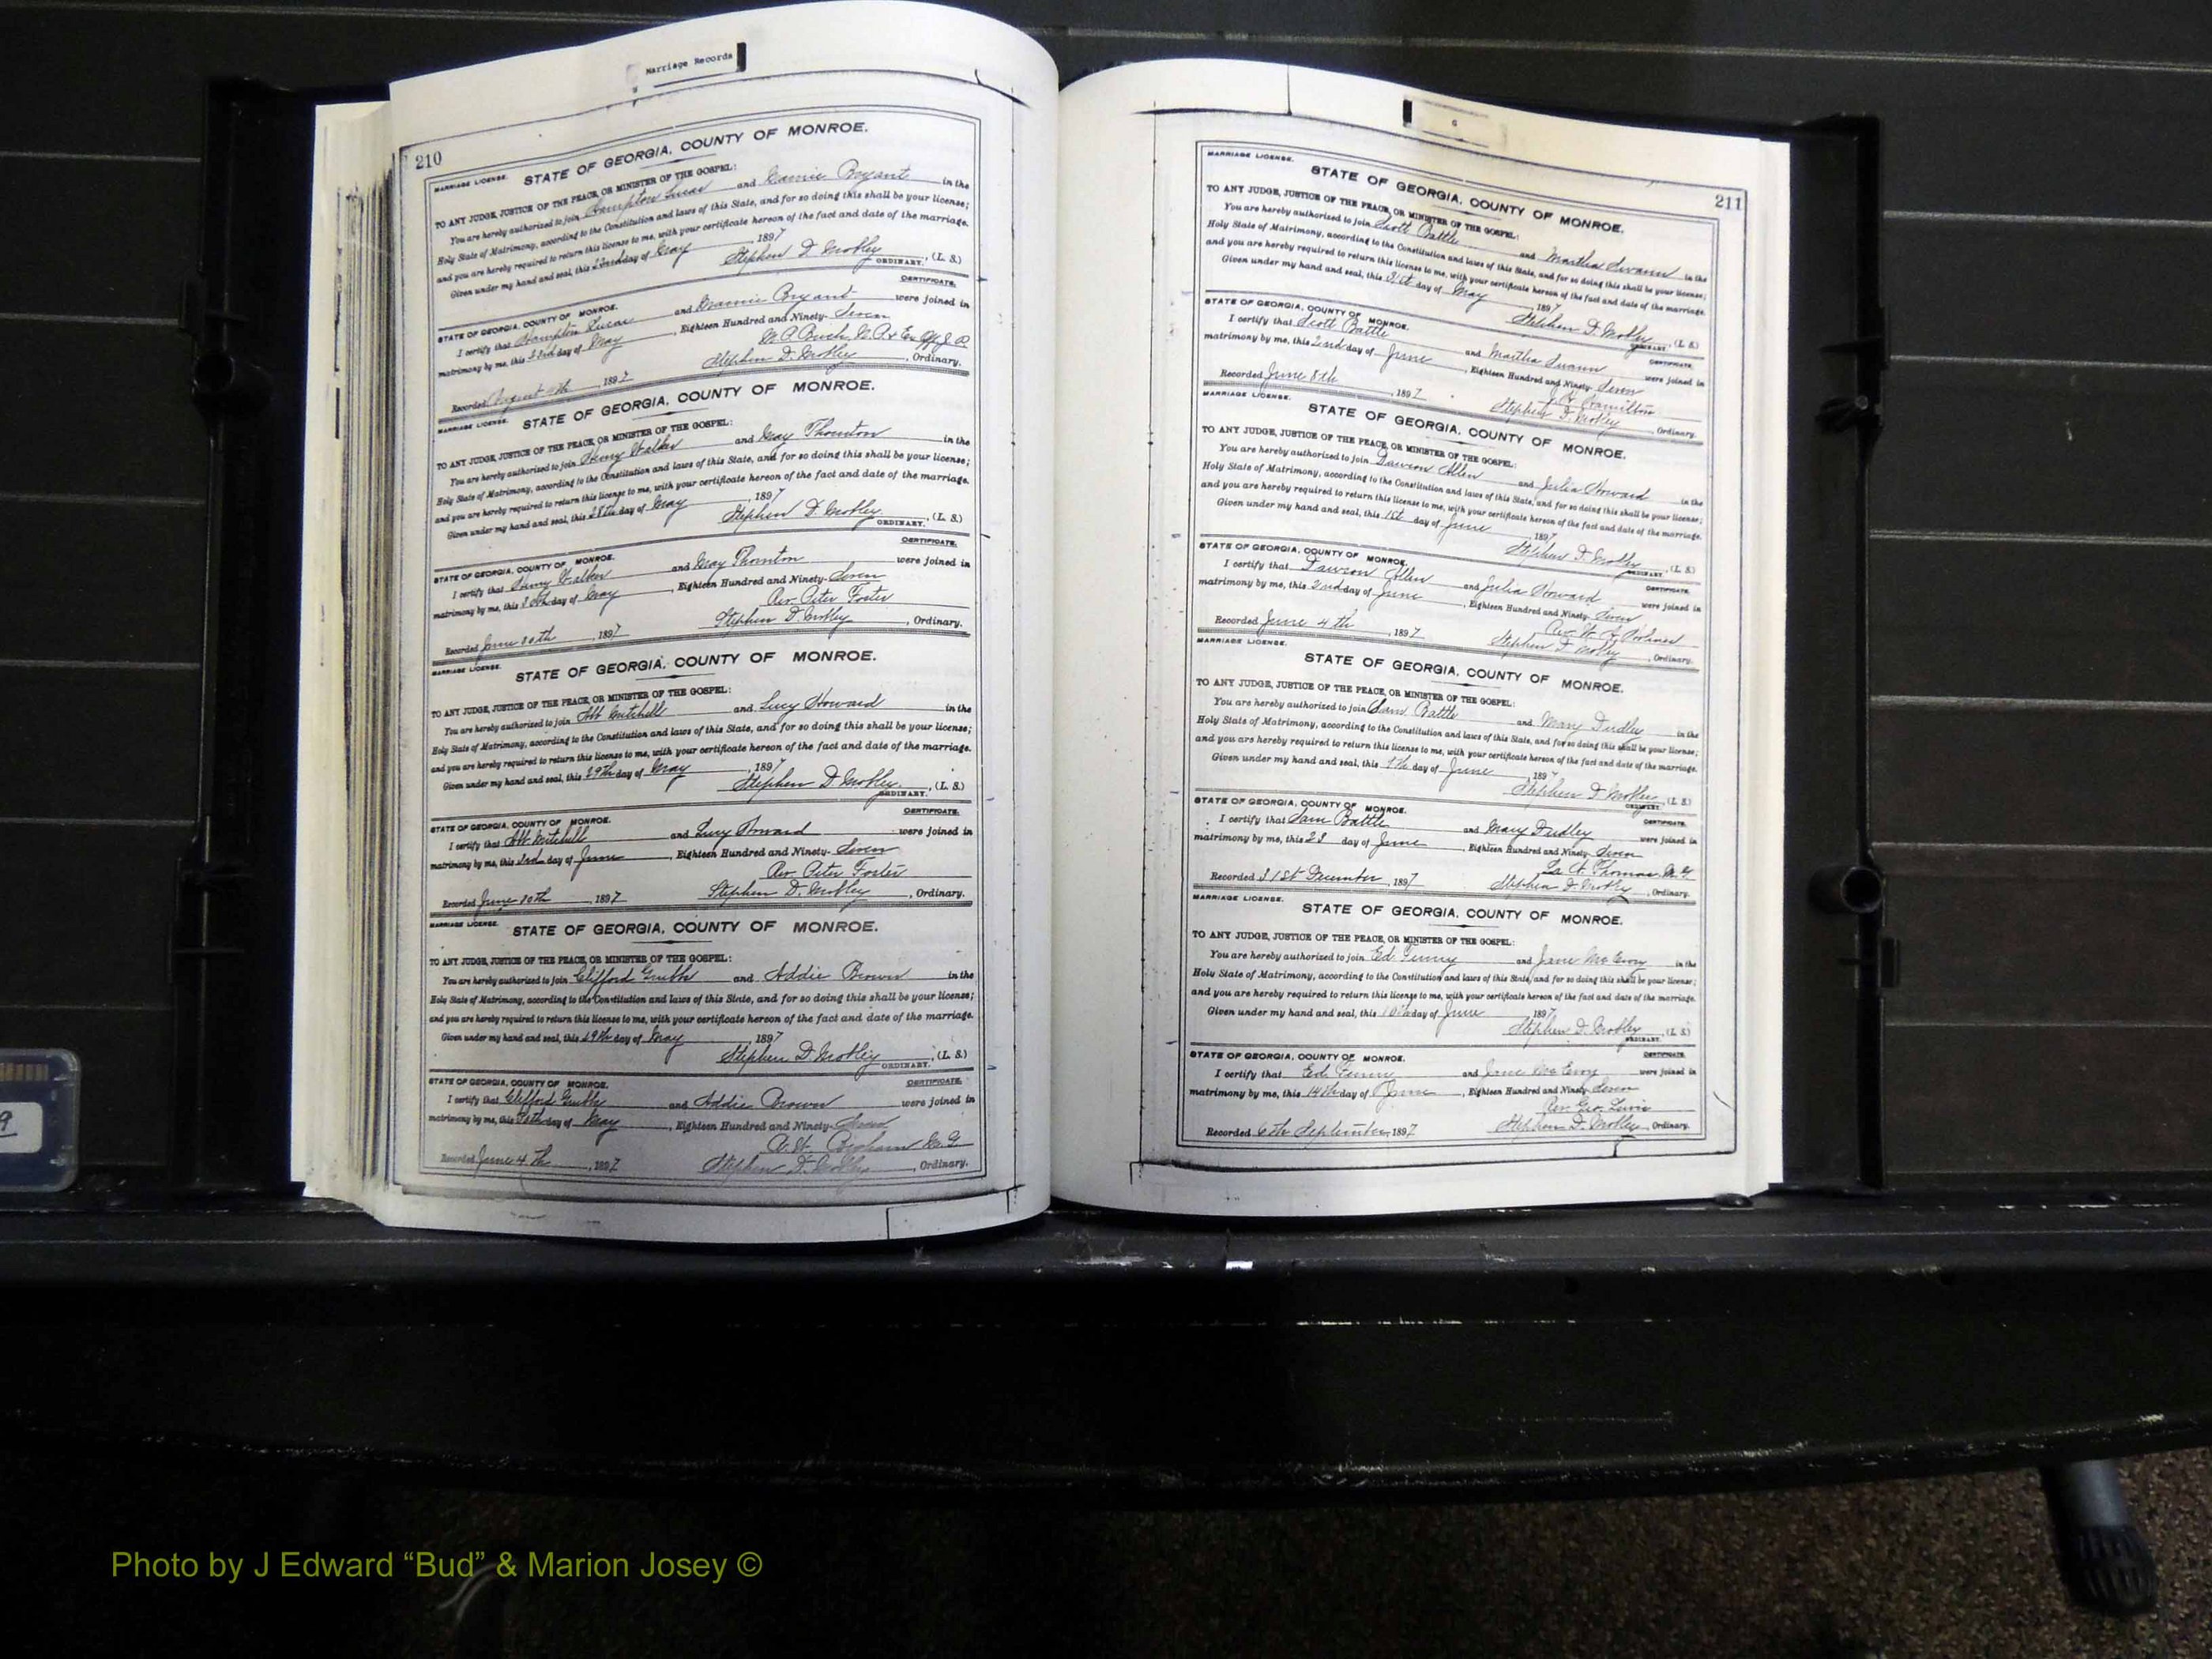 Marriage Records
210
MARRIAGE LICENSE.
STATE OF GEORGIA, COUNTY OF MONROE.
TO ANY JUDGE, JUSTICE OF THE PEACE, OR MINISTER OF THE GOSPEL:
You are hereby authorized to join Hampton Lucas and Mamie Bryant in the
Holy State of Matrimony, according to the Constitution and laws of this State, and for so doing this shall be your license;
and you are hereby required to return this license to me, with your certificate hereon of the fact and date of the marriage.
Given under my hand and seal, this 23rd day of May, 1897
Stephen D. Mobley, (L. S.)
ORDINARY.
CERTIFICATE.
STATE OF GEORGIA, COUNTY OF MONROE.
I certify that Hampton Lucas and Mamie Bryant were joined in
matrimony by me, this 23rd day of May, Eighteen Hundred and Ninety-Seven
Recorded August, 1897 Stephen D. Mobley, Ordinary.
MARRIAGE LICENSE.
STATE OF GEORGIA, COUNTY OF MONROE.
TO ANY JUDGE, JUSTICE OF THE PEACE, OR MINISTER OF THE GOSPEL:
You are hereby authorized to join Henry Walker and May Thornton in the
Holy State of Matrimony, according to the Constitution and laws of this State, and for so doing this shall be your license;
and you are hereby required to return this license to me, with your certificate hereon of the fact and date of the marriage.
Given under my hand and seal, this 28th day of May, 1897
Stephen D. Mobley, (L. S.)
ORDINARY.
CERTIFICATE.
STATE OF GEORGIA, COUNTY OF MONROE.
I certify that Henry Walker and May Thornton were joined in
matrimony by me, this 30th day of May, Eighteen Hundred and Ninety-Seven
Rev Peter Foster
Recorded June 10th, 1897 Stephen D. Mobley, Ordinary.
MARRIAGE LICENSE.
STATE OF GEORGIA, COUNTY OF MONROE.
TO ANY JUDGE, JUSTICE OF THE PEACE, OR MINISTER OF THE GOSPEL:
You are hereby authorized to join Abb Mitchell and Lucy Howard in the
Holy State of Matrimony, according to the Constitution and laws of this State, and for so doing this shall be your license;
and you are hereby required to return this license to me, with your certificate hereon of the fact and date of the marriage.
Given under my hand and seal, this 29th day of May, 1897
Stephen D. Mobley, (L. S.)
ORDINARY.
CERTIFICATE.
STATE OF GEORGIA, COUNTY OF MONROE.
I certify that Abb Mitchell and Lucy Howard were joined in
matrimony by me, this 3rd day of June, Eighteen Hundred and Ninety-Seven
Rev Peter Foster
Recorded June 10th, 1897 Stephen D. Mobley, Ordinary.
MARRIAGE LICENSE.
STATE OF GEORGIA, COUNTY OF MONROE.
TO ANY JUDGE, JUSTICE OF THE PEACE, OR MINISTER OF THE GOSPEL:
You are hereby authorized to join Clifford and Addie Brown in the
Holy State of Matrimony, according to the Constitution and laws of this State, and for so doing this shall be your license;
and you are hereby required to return this license to me, with your certificate hereon of the fact and date of the marriage.
Given under my hand and seal, this 29th day of May, 1897
Stephen D. Mobley, (L. S.)
ORDINARY.
CERTIFICATE.
STATE OF GEORGIA, COUNTY OF MONROE.
I certify that Clifford and Addie Brown were joined in
matrimony by me, this 30th day of May, Eighteen Hundred and Ninety-Seven
Recorded June 4th, 1897 Stephen D. Mobley, Ordinary.
211
MARRIAGE LICENSE.
STATE OF GEORGIA, COUNTY OF MONROE.
TO ANY JUDGE, JUSTICE OF THE PEACE, OR MINISTER OF THE GOSPEL:
You are hereby authorized to join Scott Battle and Martha Swann in the
Holy State of Matrimony, according to the Constitution and laws of this State, and for so doing this shall be your license;
and you are hereby required to return this license to me, with your certificate hereon of the fact and date of the marriage.
Given under my hand and seal, this 31st day of May, 1897
Stephen D. Mobley (L. S.)
ORDINARY.
CERTIFICATE.
STATE OF GEORGIA, COUNTY OF MONROE.
I certify that Scott Battle and Martha Swann were joined in
matrimony by me, this 2nd day of June, Eighteen Hundred and Ninety-Seven
Hamilton
Recorded June 8th, 1897 Stephen D. Mobley, Ordinary.
MARRIAGE LICENSE.
STATE OF GEORGIA, COUNTY OF MONROE.
TO ANY JUDGE, JUSTICE OF THE PEACE, OR MINISTER OF THE GOSPEL:
You are hereby authorized to join Dawson Allen and Julia Howard in the
Holy State of Matrimony, according to the Constitution and laws of this State, and for so doing this shall be your license;
and you are hereby required to return this license to me, with your certificate hereon of the fact and date of the marriage.
Given under my hand and seal, this 1st day of June, 1897
Stephen D. Mobley (L. S.)
ORDINARY.
CERTIFICATE.
STATE OF GEORGIA, COUNTY OF MONROE.
I certify that Dawson Allen and Julia Howard were joined in
matrimony by me, this 2nd day of June, Eighteen Hundred and Ninety-Seven
Rev W.
Recorded June 4th, 1897 Stephen D. Mobley, Ordinary.
MARRIAGE LICENSE.
STATE OF GEORGIA, COUNTY OF MONROE.
TO ANY JUDGE, JUSTICE OF THE PEACE, OR MINISTER OF THE GOSPEL:
You are hereby authorized to join Sam Battle and Mary Dudley in the
Holy State of Matrimony, according to the Constitution and laws of this State, and for so doing this shall be your license;
and you are hereby required to return this license to me, with your certificate hereon of the fact and date of the marriage.
Given under my hand and seal, this day of June, 1897
Stephen D. Mobley (L. S.)
ORDINARY.
CERTIFICATE.
STATE OF GEORGIA, COUNTY OF MONROE.
I certify that Sam Battle and Mary Dudley were joined in
matrimony by me, this 23 day of June, Eighteen Hundred and Ninety-Seven
Thomas M. G.
Recorded 31st December, 1897 Stephen D. Mobley, Ordinary.
MARRIAGE LICENSE.
STATE OF GEORGIA, COUNTY OF MONROE.
TO ANY JUDGE, JUSTICE OF THE PEACE, OR MINISTER OF THE GOSPEL:
You are hereby authorized to join Ed and Jane McEvoy in the
Holy State of Matrimony, according to the Constitution and laws of this State, and for so doing this shall be your license;
and you are hereby required to return this license to me, with your certificate hereon of the fact and date of the marriage.
Given under my hand and seal, this day of June, 1897
Stephen D. Mobley (L. S.)
ORDINARY.
CERTIFICATE.
STATE OF GEORGIA, COUNTY OF MONROE.
I certify that Ed and Jane McEvoy were joined in
matrimony by me, this 14th day of June, Eighteen Hundred and Ninety-Seven
Rev. Geo. Lewis
Recorded 6th September, 1897 Stephen D. Mobley, Ordinary.
9
Photo by J Edward “Bud” & Marion Josey ©